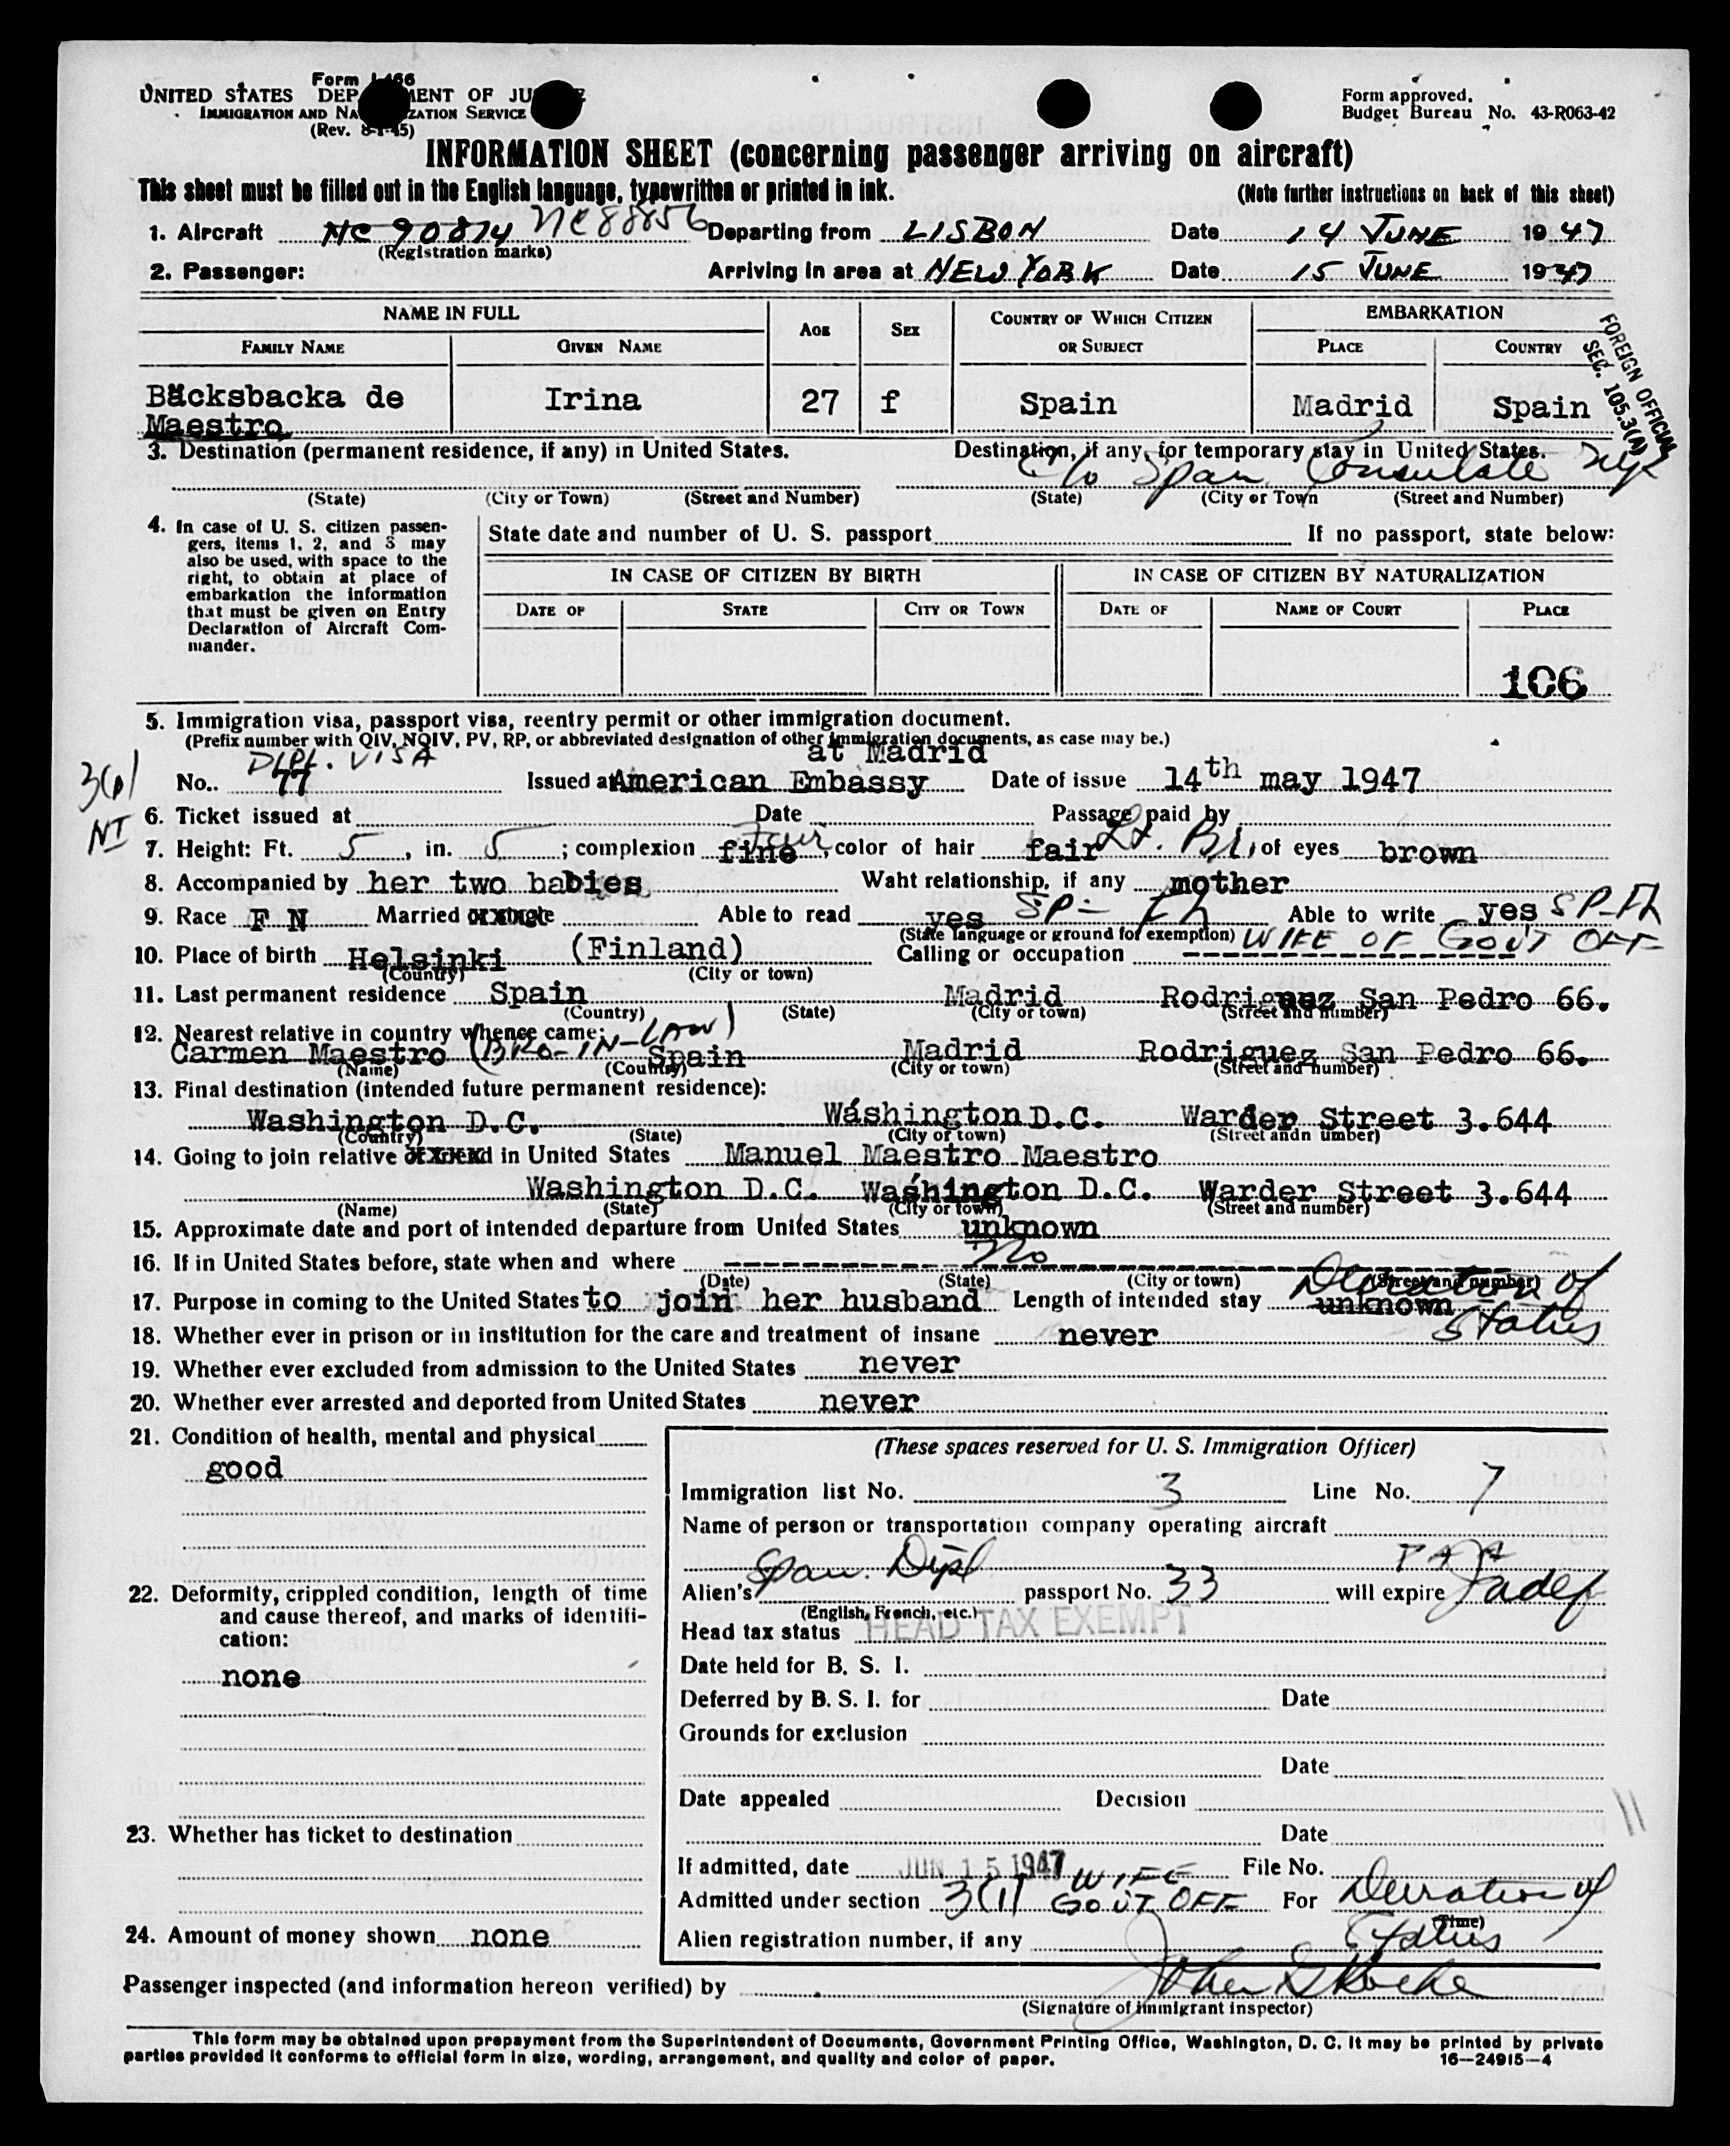 Form I-466
UNITED STATES DEP MENT OF JU
IMMIGRATION AND NA ZATION SERVICE
(Rev. 8-1-45)
Form approved.
Budget Bureau No. 43-R063-42
INFORMATION SHEET (concerning passenger arriving on aircraft)
This sheet must be filled out in the English language, typewritten or printed in ink. (Note further instructions on back of this sheet)
1. Aircraft NC 90874 NC88856 Departing from LISBON Date 14 JUNE 1947
(Registration marks)
2. Passenger: Arriving in area at NEW YORK Date 15 JUNE 1947
NAME IN FULL AGE SEX COUNTRY OF WHICH CITIZEN OR SUBJECT EMBARKATION
FAMILY NAME GIVEN NAME PLACE COUNTRY
FOREIGN OFFICIAL
SEC. 105.3(A)
Bäcksbacka de Irina 27 f Spain Madrid Spain
Maestro
3. Destination (permanent residence, if any) in United States. Destination, if any, for temporary stay in United States.
c/o Span. Consulate NYC
(State) (City or Town) (Street and Number) (State) (City or Town (Street and Number)
4. In case of U. S. citizen passen-
gers, items 1, 2, and 3 may
also be used, with space to the
right, to obtain at place of
embarkation the information
that must be given on Entry
Declaration of Aircraft Com-
mander.
State date and number of U. S. passport If no passport, state below:
IN CASE OF CITIZEN BY BIRTH IN CASE OF CITIZEN BY NATURALIZATION
DATE OF STATE CITY OR TOWN DATE OF NAME OF COURT PLACE
106
5. Immigration visa, passport visa, reentry permit or other immigration document.
(Prefix number with QIV, NQIV, PV, RP, or abbreviated designation of other immigration documents, as case may be.)
DIPL. VISA at Madrid
No.. 77 Issued at American Embassy Date of issue 14th may 1947
NI
6. Ticket issued at Date Passage paid by
7. Height: Ft. 5, in. 5; complexion fine Fair, color of hair fair Lt. Br., of eyes brown
8. Accompanied by her two babies Waht relationship, if any mother
9. Race F N Married or single Able to read yes SP- Able to write yes
(State language or ground for exemption) WIFE OF GOVT OFF
10. Place of birth Helsinki (Finland) Calling or occupation ----------------
(Country) (City or town)
11. Last permanent residence Spain Madrid Rodriguez San Pedro 66.
(Country) (State) (City or town) (Street and number)
12. Nearest relative in country whence came:
Carmen Maestro (BRO-IN-LAW) Spain Madrid Rodriguez San Pedro 66.
(Name) (Country) (City or town) (Street and number)
13. Final destination (intended future permanent residence):
Washington D.C. Wáshington D.C. Warder Street 3.644
(Country) (State) (City or town) (Street andn umber)
14. Going to join relative or friend in United States Manuel Maestro Maestro
Washington D.C. Washington D.C. Warder Street 3.644
(Name) (State) (City or town) (Street and number)
15. Approximate date and port of intended departure from United States unknown
16. If in United States before, state when and where no
(Date) (State) (City or town) (Street and number)
17. Purpose in coming to the United States to join her husband Length of intended stay unknown Duration of
Status
18. Whether ever in prison or in institution for the care and treatment of insane never
19. Whether ever excluded from admission to the United States never
20. Whether ever arrested and deported from United States never
21. Condition of health, mental and physical
good
22. Deformity, crippled condition, length of time
and cause thereof, and marks of identifi-
cation:
none
23. Whether has ticket to destination
24. Amount of money shown none
(These spaces reserved for U. S. Immigration Officer)
Immigration list No. 3 Line No. 7
Name of person or transportation company operating aircraft
PAA
Alien's Span. Dipl passport No. 33 will expire
(English, French, etc.)
Head tax status HEAD TAX EXEMPT
Date held for B. S. I.
Deferred by B. S. I. for Date
Grounds for exclusion
Date
Date appealed Decision
Date
If admitted, date JUN 15 1947 File No.
Admitted under section 3(1) WIFE GOVT OFF For Duration of
(Time)
Status
Alien registration number, if any
Passenger inspected (and information hereon verified) by
(Signature of immigrant inspector)
This form may be obtained upon prepayment from the Superintendent of Documents, Government Printing Office, Washington, D. C. It may be printed by private
parties provided it conforms to official form in size, wording, arrangement, and quality and color of paper. 16—24915-4